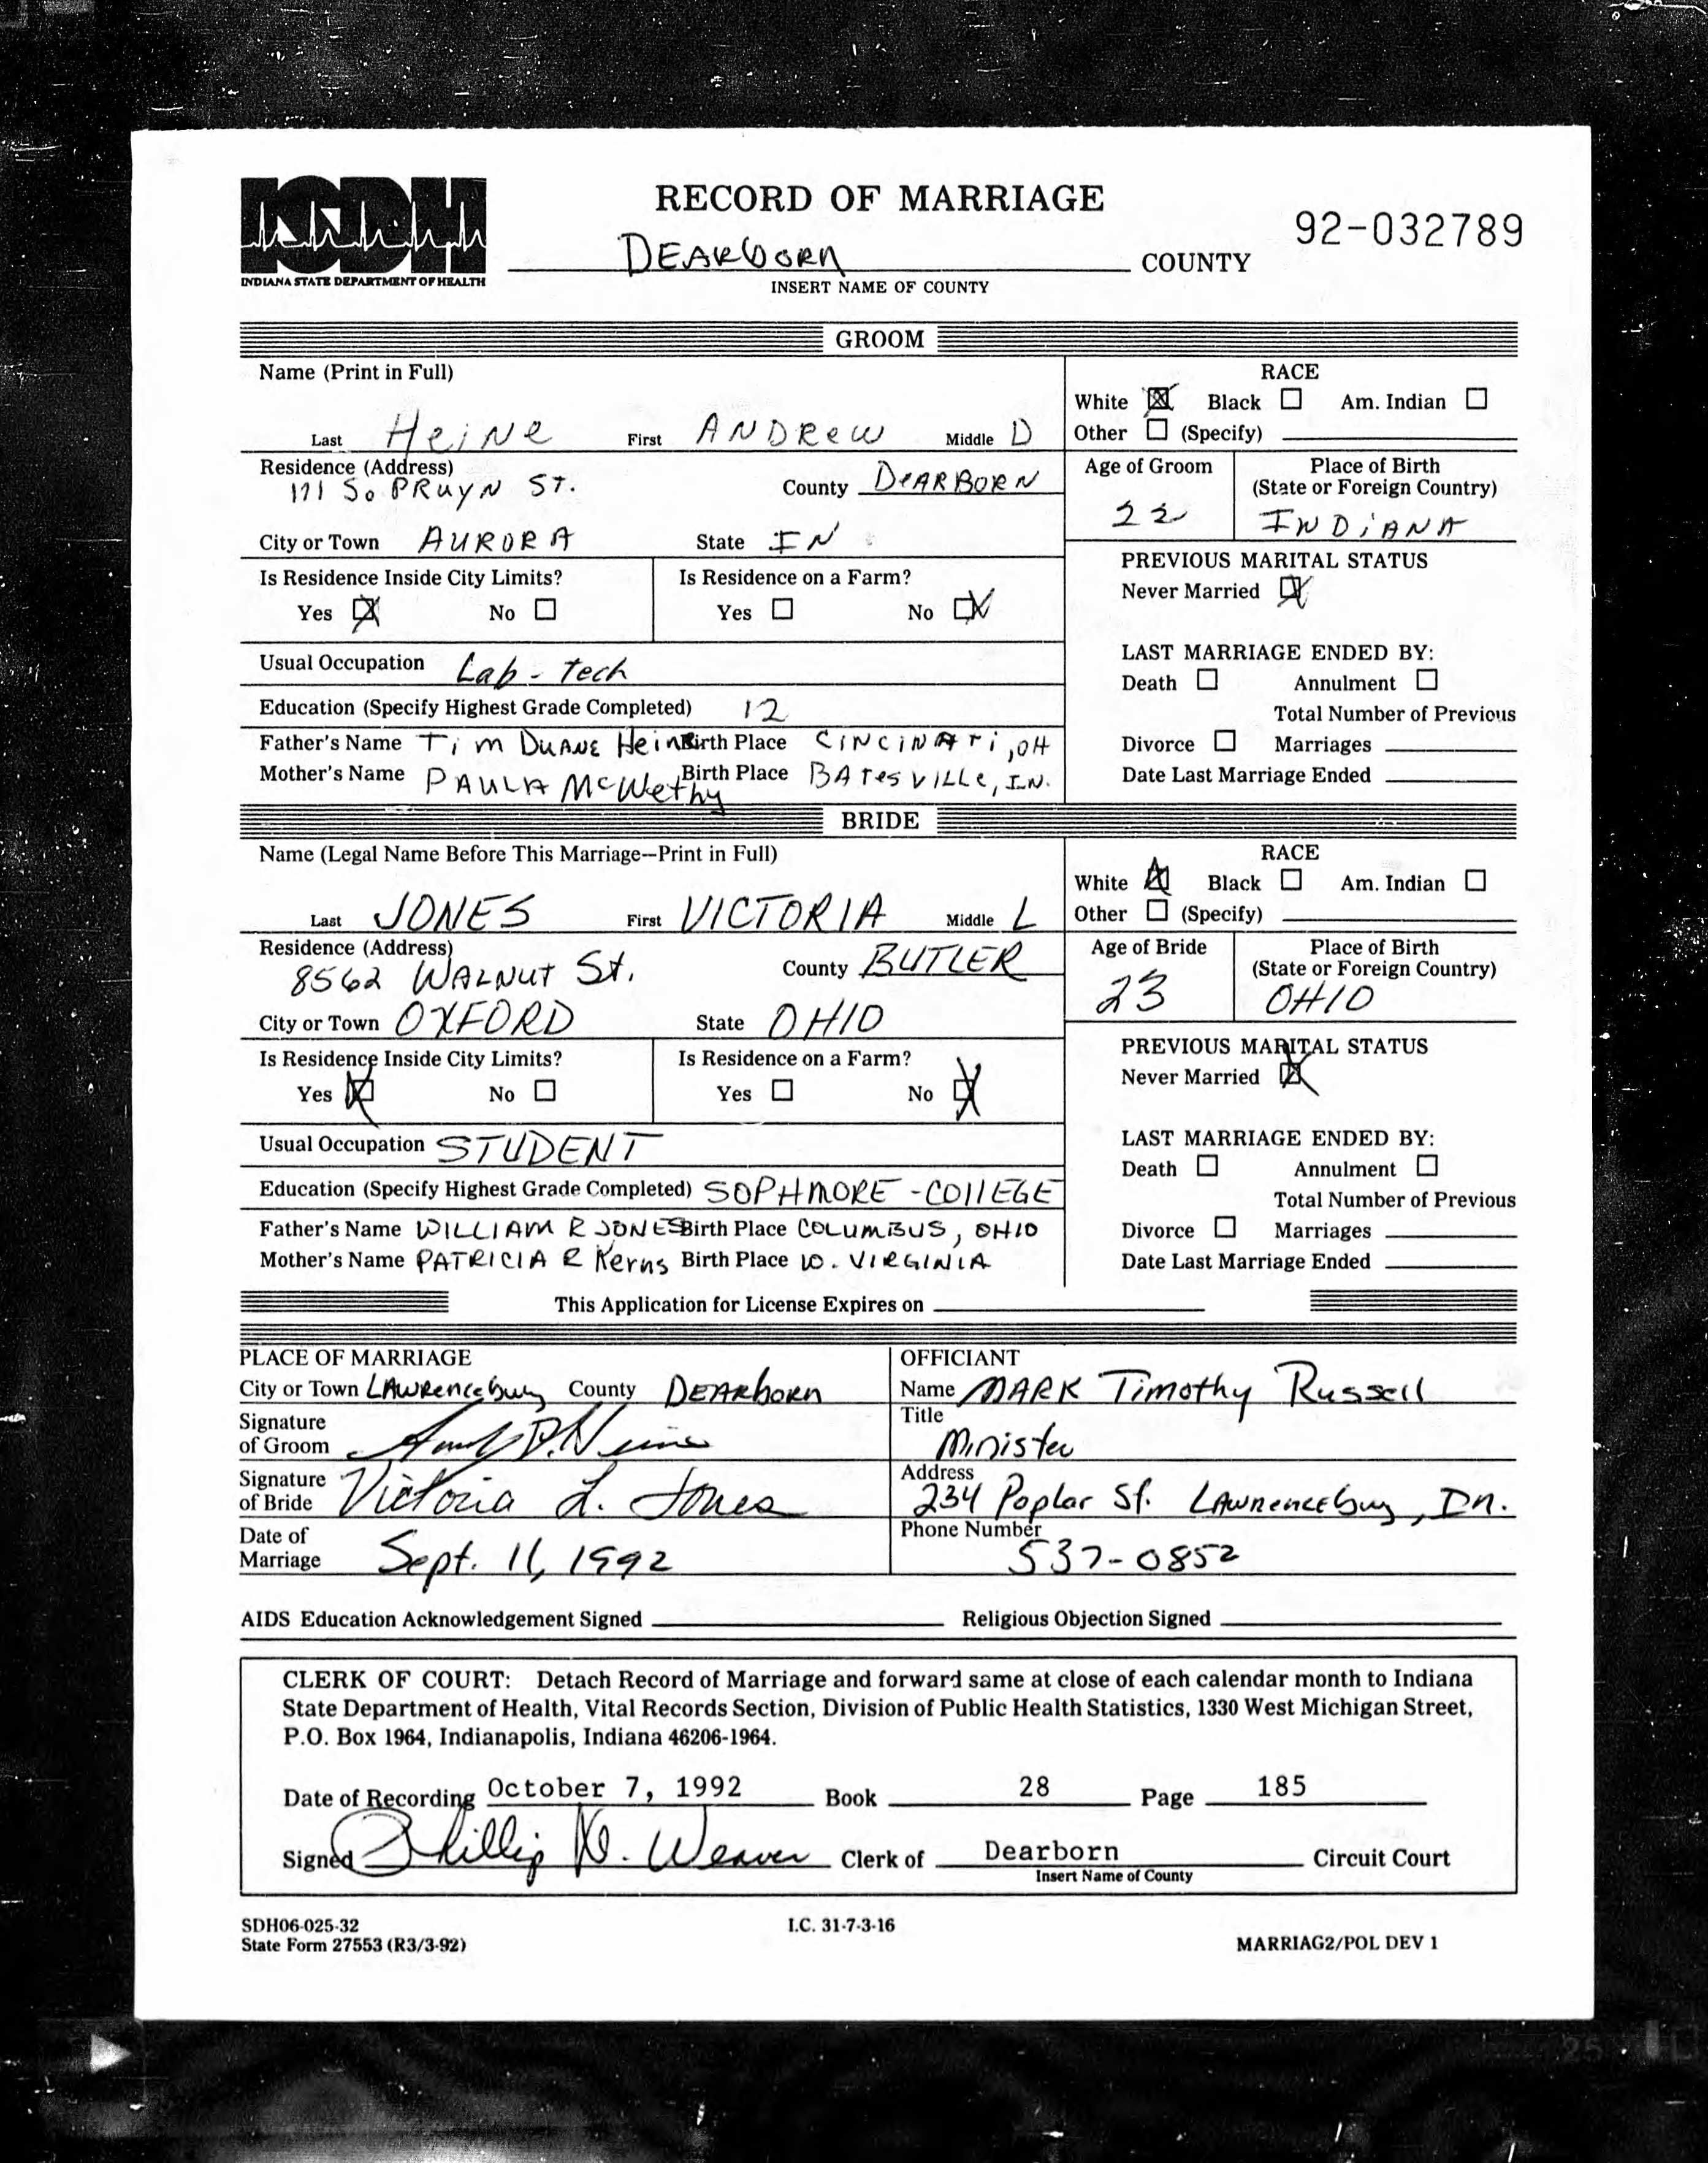 ISDH
INDIANA STATE DEPARTMENT OF HEALTH
RECORD OF MARRIAGE
92-032789
DEARBORN COUNTY
INSERT NAME OF COUNTY
GROOM
Name (Print in Full)
Last Heine First ANDReW Middle D
RACE
White ☒ Black ☐ Am. Indian ☐
Other ☐ (Specify)
Residence (Address)
171 So PRUYN ST. County DeARBORN
City or Town AURORA State IN
Age of Groom
22
Place of Birth
(State or Foreign Country)
INDiANA
Is Residence Inside City Limits?
Yes ☒ No ☐
Is Residence on a Farm?
Yes ☐ No ☒
PREVIOUS MARITAL STATUS
Never Married ☒
Usual Occupation Lab - tech
Education (Specify Highest Grade Completed) 12
Father's Name Tim DUANE Heine Birth Place CINCiNATi, OH
Mother's Name PAULA McWethy Birth Place BATesVILLe, IN.
LAST MARRIAGE ENDED BY:
Death ☐ Annulment ☐
Total Number of Previous
Divorce ☐ Marriages
Date Last Marriage Ended
BRIDE
Name (Legal Name Before This Marriage--Print in Full)
Last JONES First VICTORIA Middle L
RACE
White ☒ Black ☐ Am. Indian ☐
Other ☐ (Specify)
Residence (Address)
8562 WALNUT St. County BUTLER
City or Town OXFORD State OHIO
Age of Bride
23
Place of Birth
(State or Foreign Country)
OHIO
Is Residence Inside City Limits?
Yes ☒ No ☐
Is Residence on a Farm?
Yes ☐ No ☒
PREVIOUS MARITAL STATUS
Never Married ☒
Usual Occupation STUDENT
Education (Specify Highest Grade Completed) SOPHMORE - COllEGE
Father's Name WILLIAM R JONES Birth Place COLUMBUS, OHIO
Mother's Name PATRICIA R Kerns Birth Place W. VIRGINIA
LAST MARRIAGE ENDED BY:
Death ☐ Annulment ☐
Total Number of Previous
Divorce ☐ Marriages
Date Last Marriage Ended
This Application for License Expires on
PLACE OF MARRIAGE
City or Town LAWRenceburg County DEARborn
Signature
of Groom
Signature
of Bride Victoria L. Jones
Date of
Marriage Sept. 11, 1992
OFFICIANT
Name MARK Timothy Russell
Title
Minister
Address
234 Poplar St. LAwrenceburg, In.
Phone Number
537-0852
AIDS Education Acknowledgement Signed Religious Objection Signed
CLERK OF COURT: Detach Record of Marriage and forward same at close of each calendar month to Indiana
State Department of Health, Vital Records Section, Division of Public Health Statistics, 1330 West Michigan Street,
P.O. Box 1964, Indianapolis, Indiana 46206-1964.
Date of Recording October 7, 1992 Book 28 Page 185
Signed Phillip D. Weaver Clerk of Dearborn Circuit Court
Insert Name of County
SDH06-025-32
State Form 27553 (R3/3-92)
I.C. 31-7-3-16
MARRIAG2/POL DEV 1